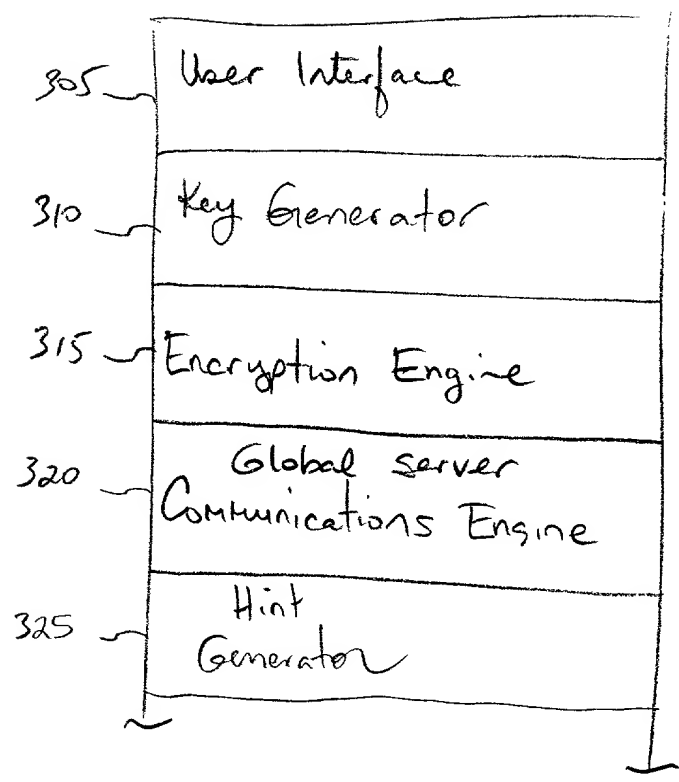 305 User Interface
310 Key Generator
315 Encryption Engine
320 Global server
Communications Engine
Hint
325 Generator